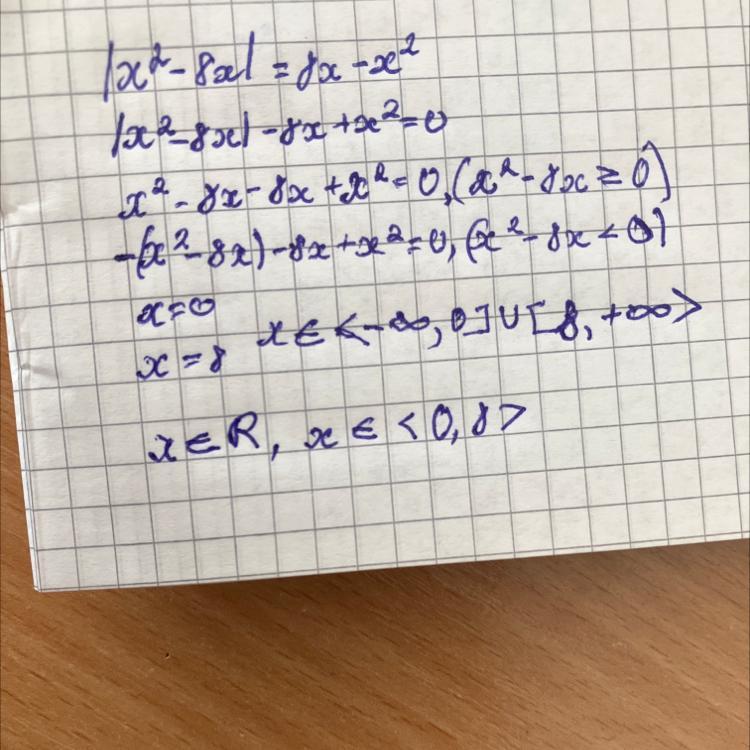 |x² - 8x| = 8x - x²
|x² - 8x| - 8x + x² = 0
x² - 8x - 8x + x² = 0, (x² - 8x ≥ 0)
-(x² - 8x) - 8x + x² = 0, (x² - 8x < 0)
x = 0
x = 8 x ∈ <-∞, 0] ∪ [8, +∞>
x ∈ R, x ∈ <0, 8>